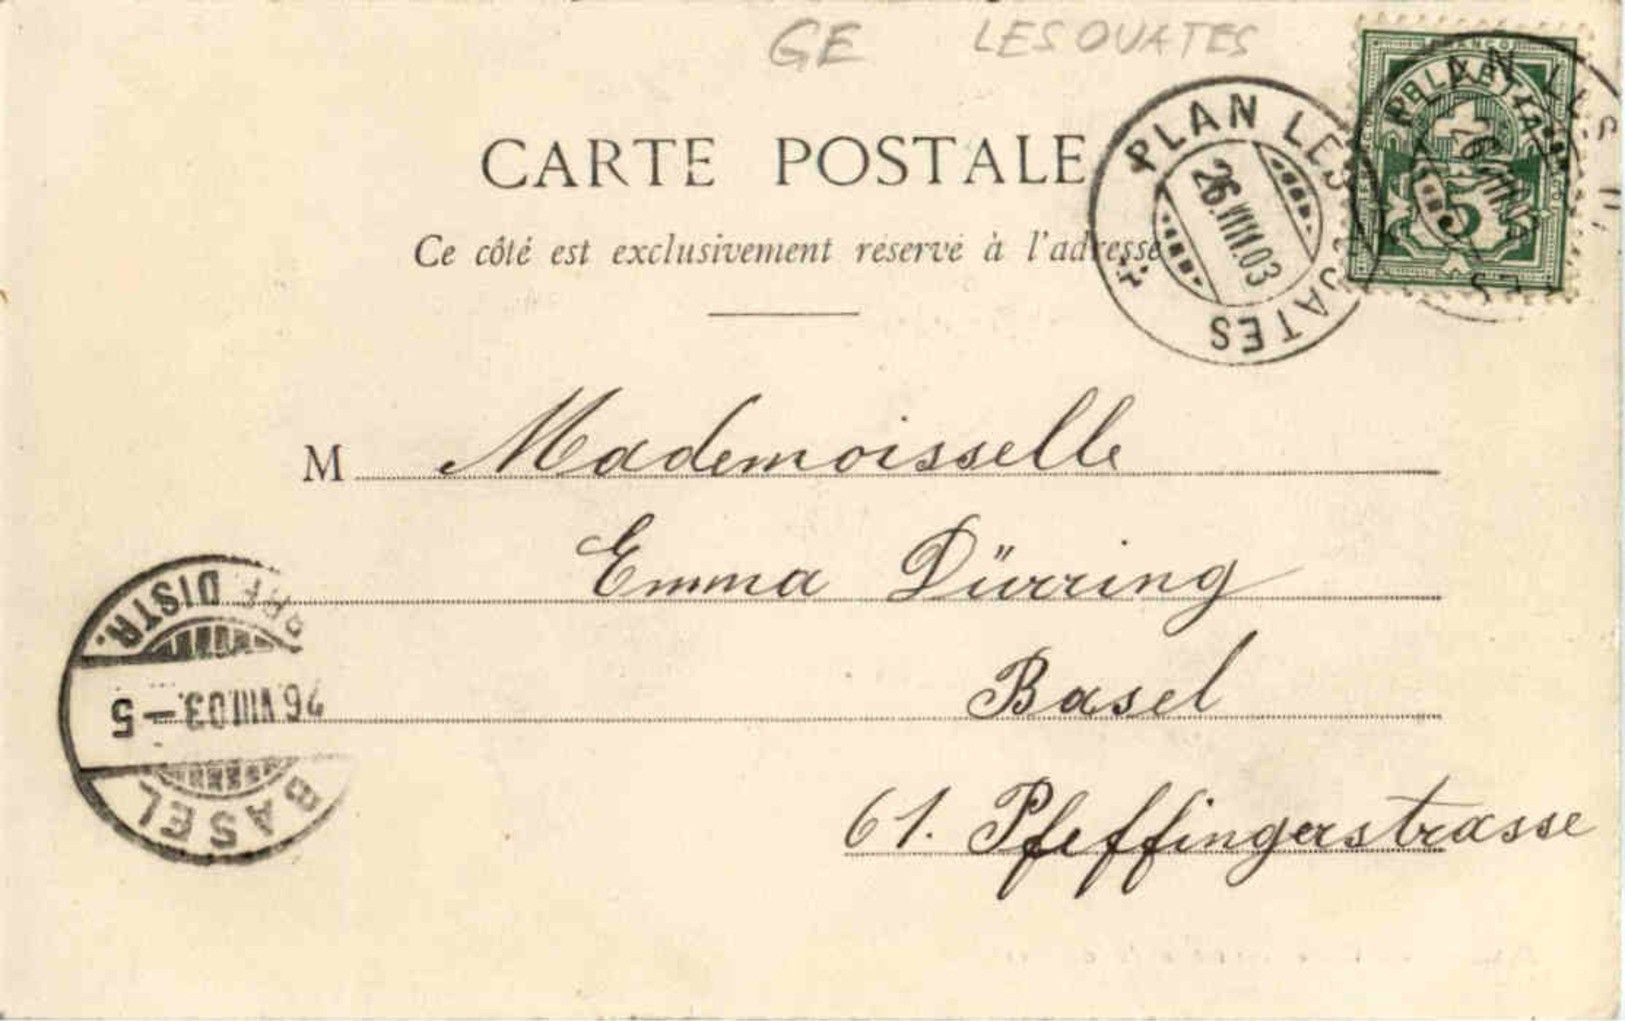 GE LES OUATES
CARTE POSTALE
Ce côté est exclusivement réservé à l'adresse
PLAN LES OUATES
26.VIII.03
5
M Mademoisselle
Emma Dürring
Basel
61. Pfeffingerstrasse
BASEL
26.VIII.03.-5
DISTR.